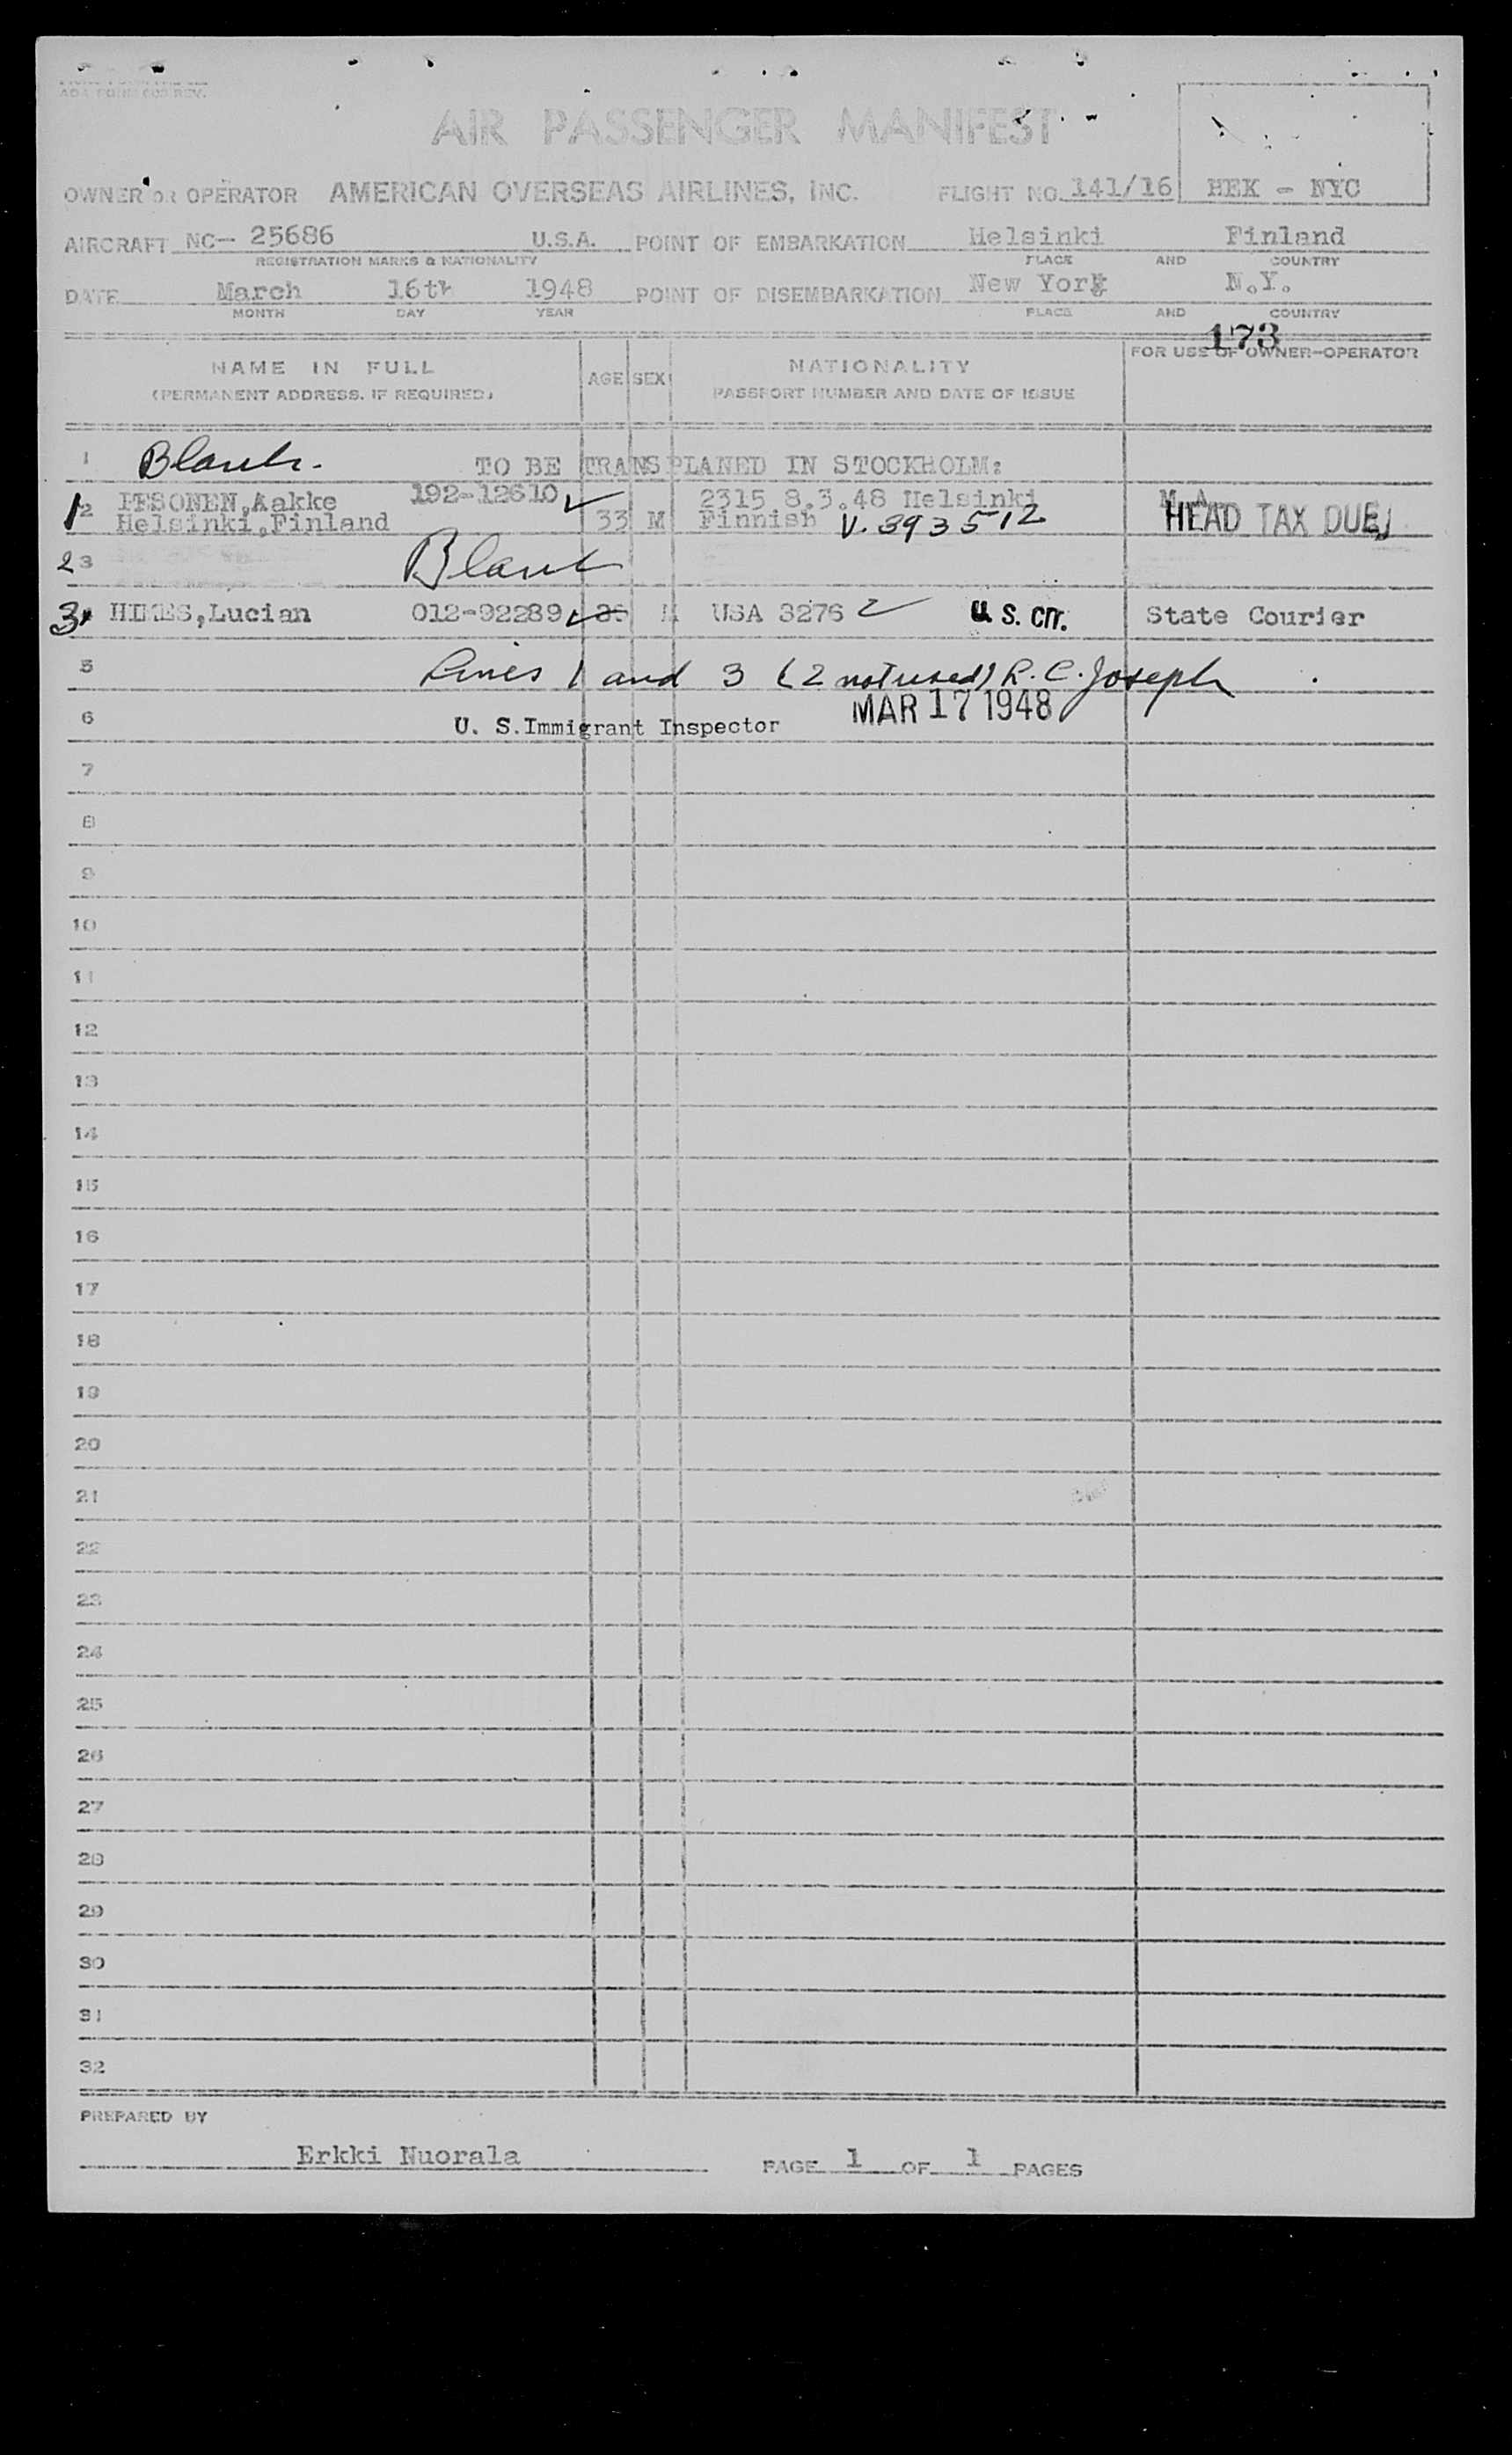 AIR PASSENGER MANIFEST
OWNER OR OPERATOR AMERICAN OVERSEAS AIRLINES, INC. FLIGHT NO. 141/16 HEK - NYC
AIRCRAFT NC- 25686 U.S.A. POINT OF EMBARKATION Helsinki Finland
REGISTRATION MARKS & NATIONALITY PLACE AND COUNTRY
DATE March 16th 1948 POINT OF DISEMBARKATION New York N.Y.
MONTH DAY YEAR PLACE AND COUNTRY
173
NAME IN FULL AGE SEX NATIONALITY FOR USE OF OWNER-OPERATOR
(PERMANENT ADDRESS, IF REQUIRED) PASSPORT NUMBER AND DATE OF ISSUE
1 Blank. TO BE TRANSPLANED IN STOCKHOLM:
1 2 Aakke 192-12610 2315 8.3.48 Helsinki
Helsinki, Finland 33 M Finnish V. 893512 HEAD TAX DUE
2 3 Blank
3 Lucian 012-92289 USA 3276 U.S. CIT. State Courier
5 Lines 1 and 3 (2 not used) R. C. Joseph
6 U. S. Immigrant Inspector MAR 17 1948
7
8
9
10
11
12
13
14
15
16
17
18
19
20
21
22
23
24
25
26
27
28
29
30
31
32
PREPARED BY
Erkki Nuorala PAGE 1 OF 1 PAGES